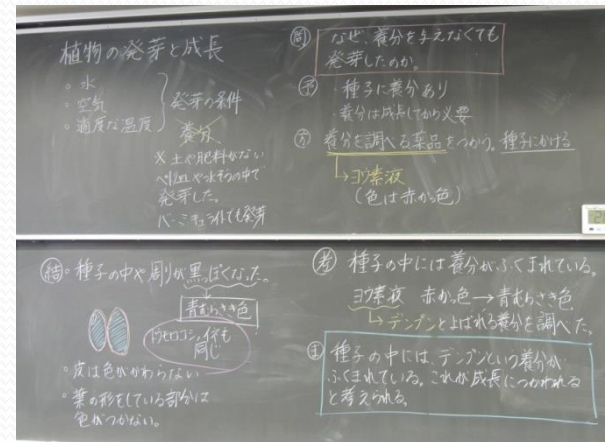 植物の発芽と成長
。水
。空気
。適度な温度
発芽の条件
養分
×土や肥料がない
発芽した。
バーミキュライトでも発芽
問
なぜ、養分を与えなくても
発芽したのか。
予
・種子に養分あり
・養分は成長してから必要
方 養分を調べる薬品をつかう。種子にかける
→ヨウ素液
(色は赤かっ色)
結 。種子の中や周りが黒っぽくなった。
青むらさき色
トウモロコシ、イネも
同じ
。皮は色がかわらない
。葉の形をしている部分は
色がつかない。
考 種子の中には養分がふくまれている。
ヨウ素液 赤かっ色→青むらさき色
→デンプンとよばれる養分を調べた。
ま 種子の中には、デンプンという養分が
ふくまれている。これが成長につかわれる
と考えられる。